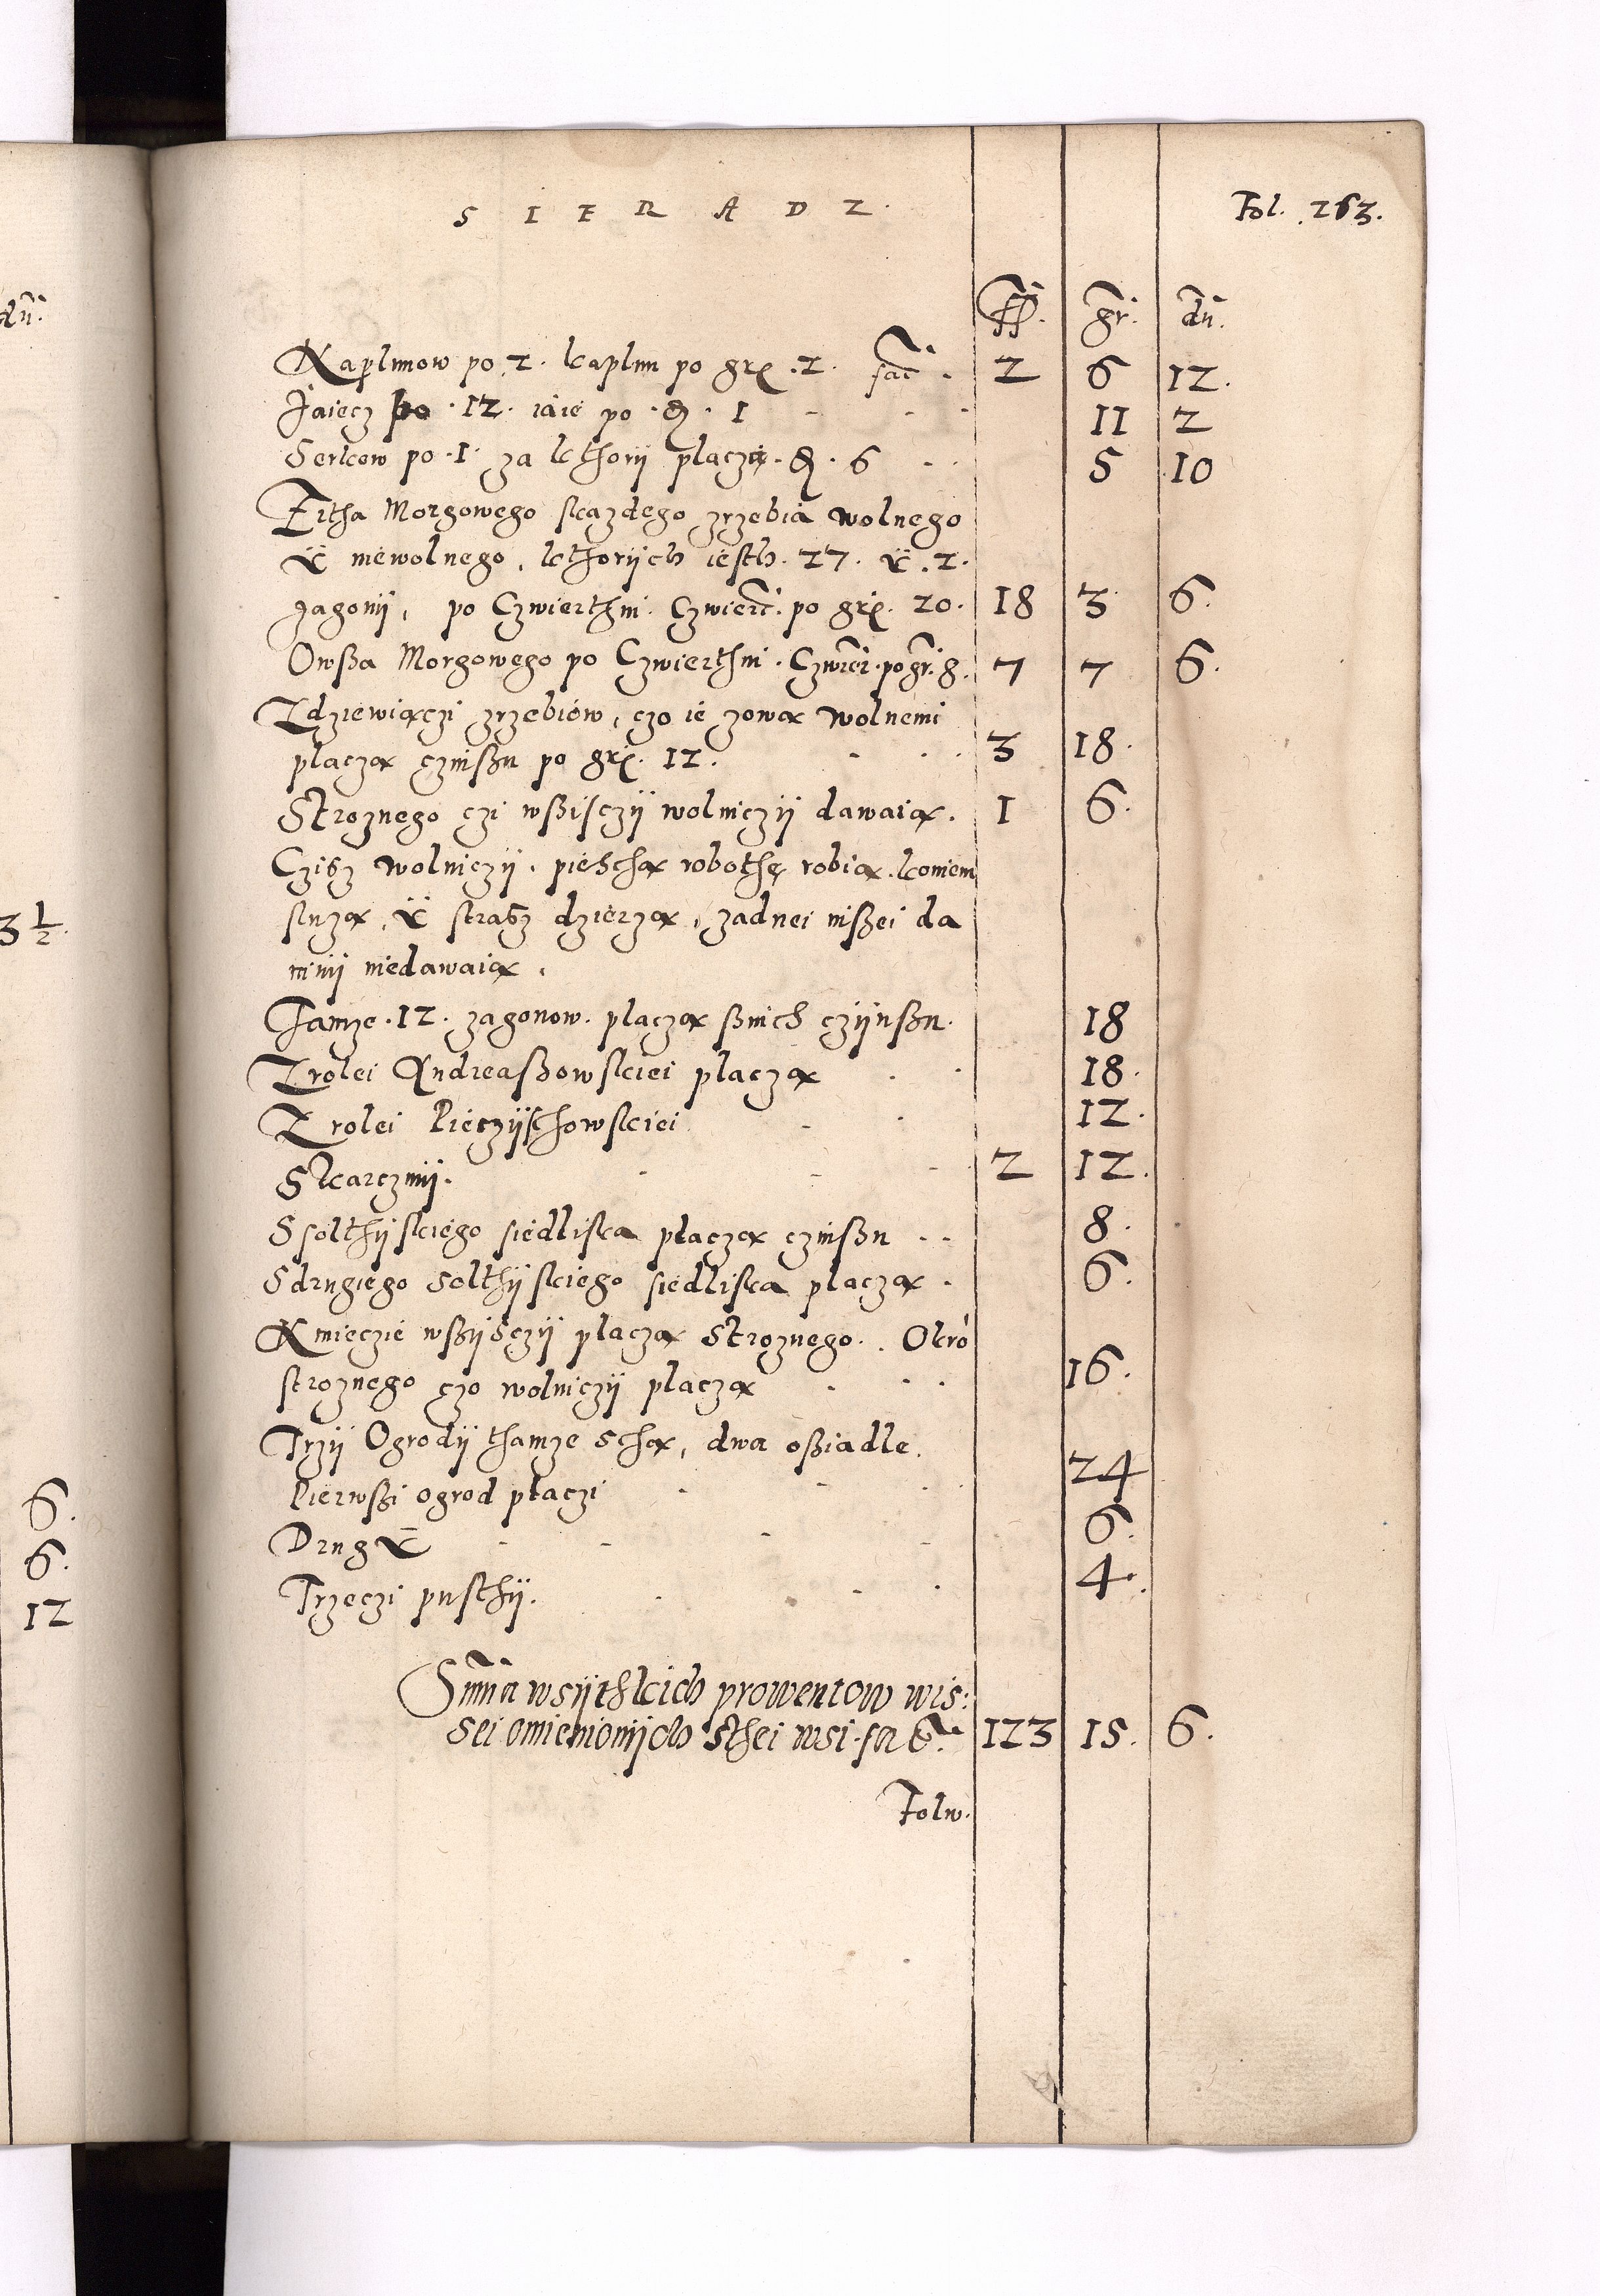 SIERADZ.
Fol. 263.
ff. gr. dn.
dn.
Kaplunow po .2. kaplun po gr. .2. fac. 2 6 12.
Jaiecz po .12. iaie po .d. 1 11 2
Serkow po .1. za kthorij placzą .d. 6 5 10
Zitha Morgowego skazdego zrzebia wolnego
Ÿ niewolnego, kthorijch iesth. 27. Ÿ .2.
zagonij, po Czwierthni. Czwierć. po gr. 20. 18 3 6.
Owßa Morgowego po Czwierthni. Czwierci. po gr. 8. 7 7 6.
Zdziewiączi zrzebiow, czo ie zową wolnemi
placzą czinßu po gr. 12. 3 18.
Stroznego czi wßisczÿ wolniczÿ dawaią. 1 6.
Cziſz wolniczÿ. pieschą robothę robią. koniem
służą, Ÿ straſz dzierzą, zadnei nißei da
ninij niedawaią.
Tamze .12. zagonow. placzą ßnich czijnßu. 18
Zrolei Andreaßowskiei placzą 18.
Z rolei Pieczÿchowskiei 12.
3½.
Skarczmij. 2 12.
Ssolthijskiego siedliska placzą czinßu 8.
Sdrugiego Solthijskiego siedliska placzą. 6.
Kmieczie wßÿsczÿ placzą Stroznego. Okró
stroznego czo wolniczÿ placzą 16.
Trzÿ Ogrodij thamze Schą, dwa oßiadle.
Pierwßi ogrod płaczi 24
6.
DrugŸ 6.
6.
Trzeczi pusthÿ. 4.
12
Suma wsÿthkich prowentow wis:
sei omienionijch Sthei wsi. facit 123 15. 6.
Folw.